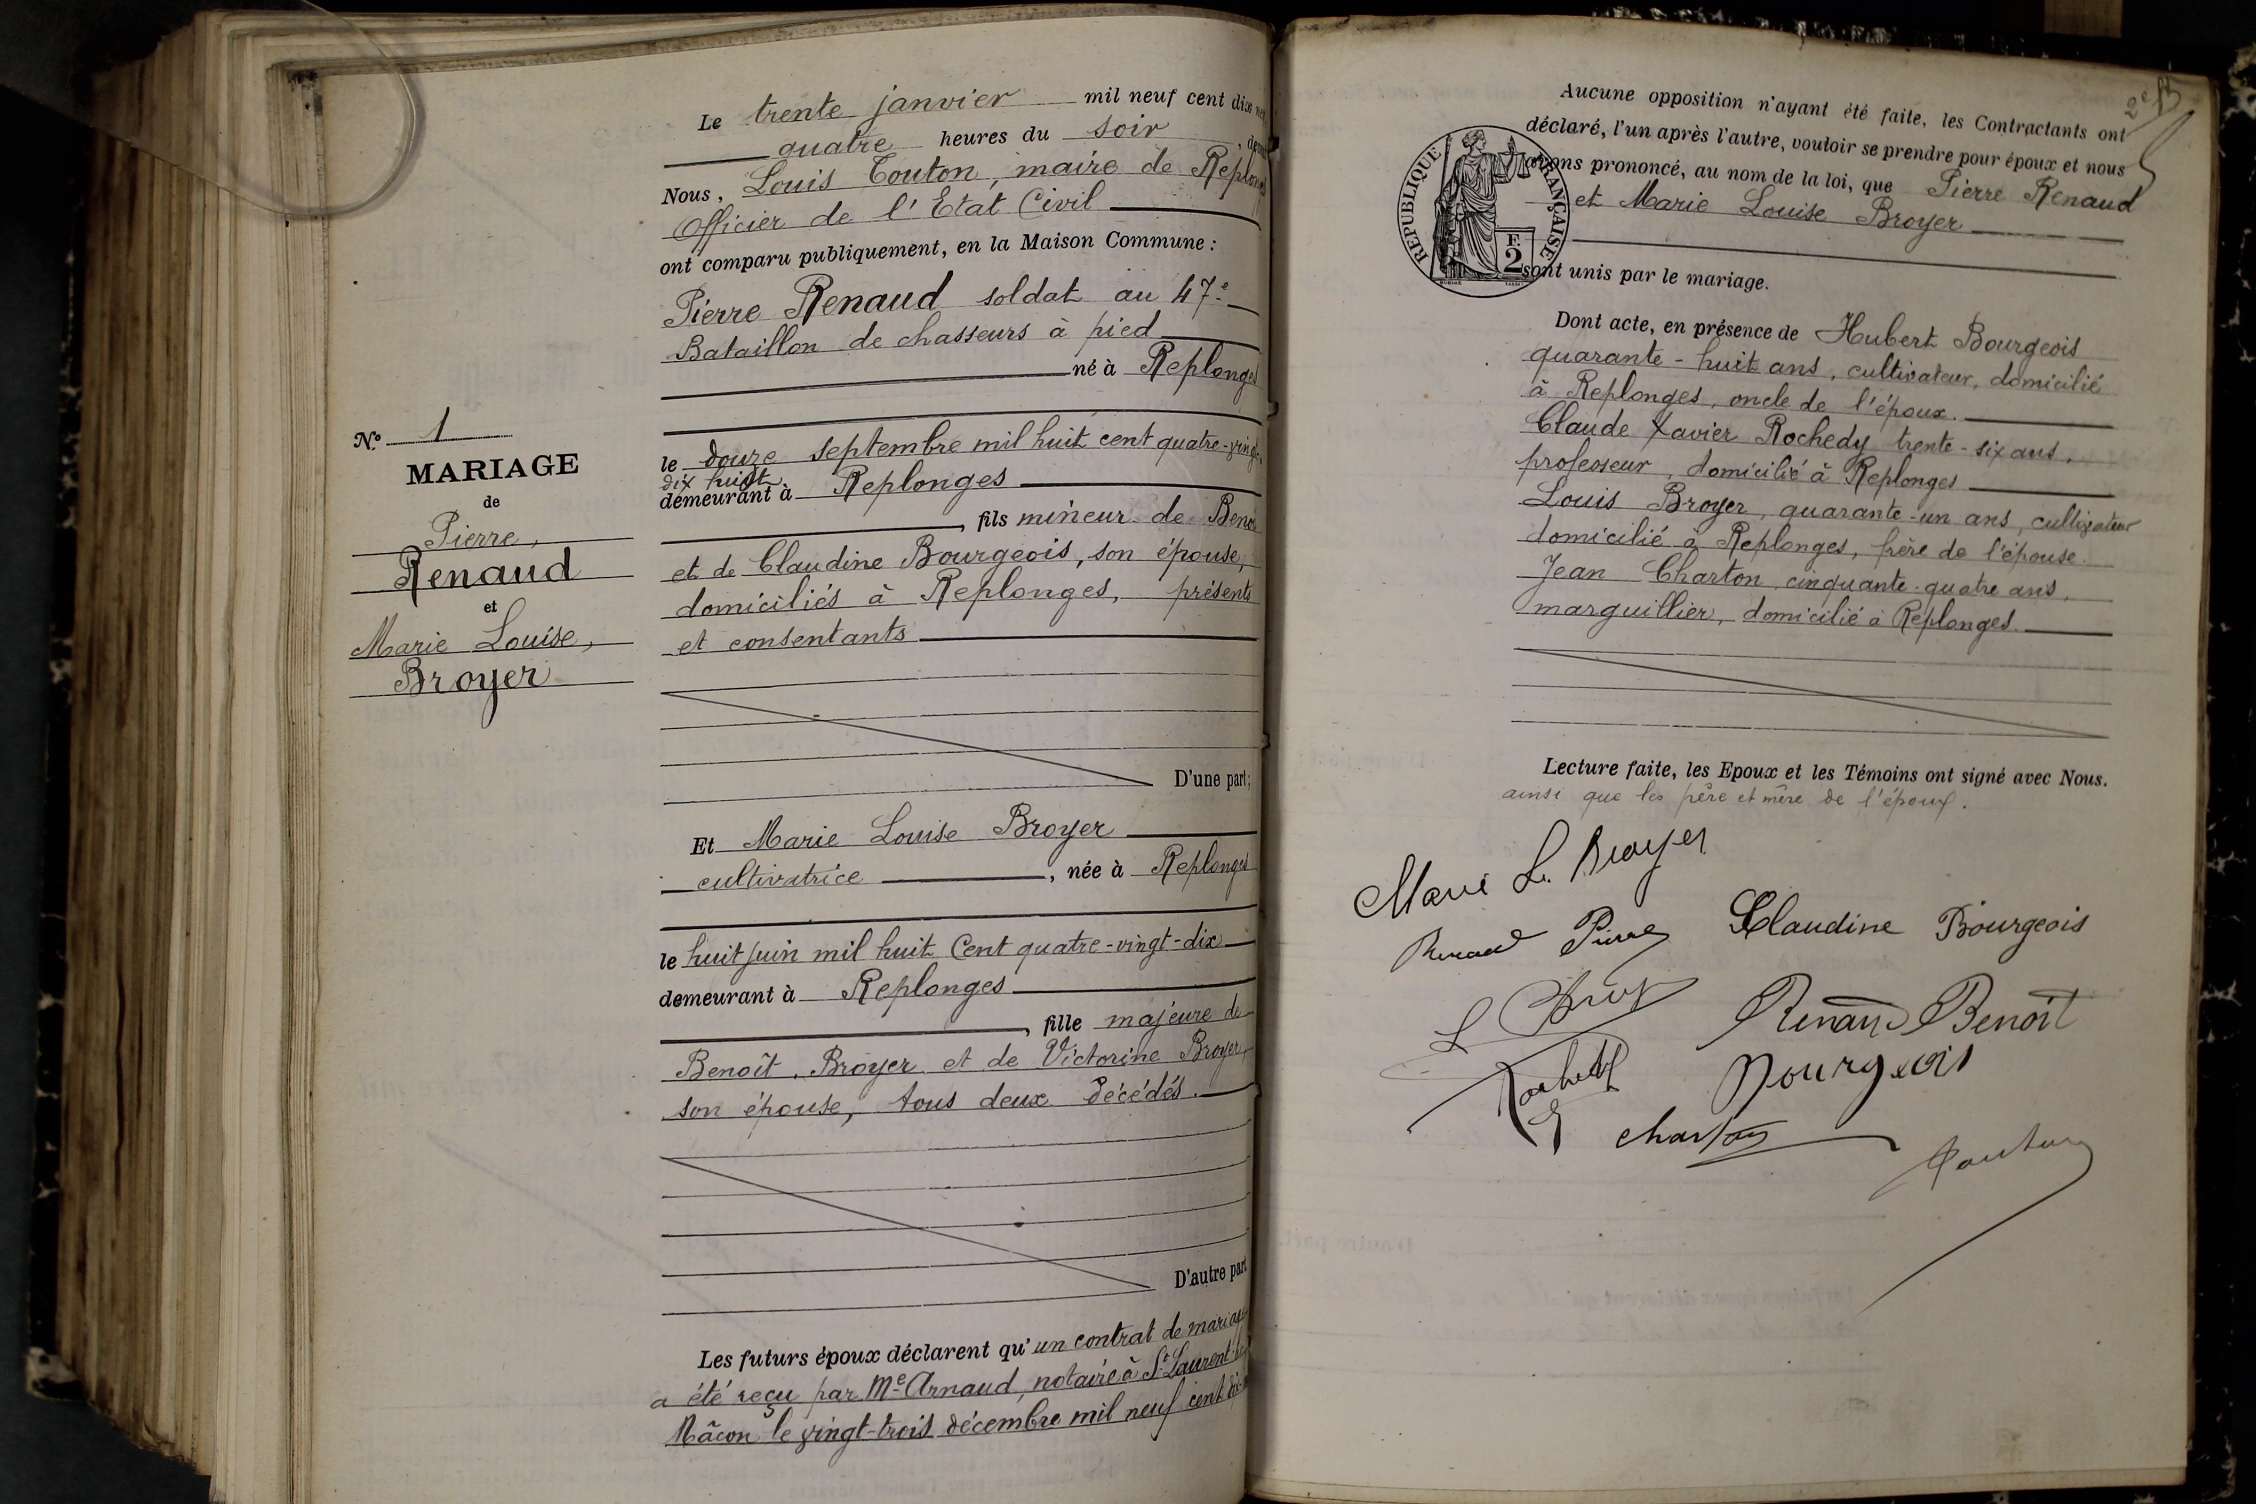 Le trente janvier mil neuf cent dix neu
quatre heures du soir, deva
Nous, Louis Touton, maire de Replonges
Officier de l'Etat Civil
ont comparu publiquement, en la Maison Commune :
Pierre Renaud soldat au 47e
Bataillon de chasseurs à pied
né à Replonges
le douze septembre mil huit cent quatre-vingt-
dix huit
demeurant à Replonges
, fils mineur de Benoi
et de Claudine Bourgeois, son épouse,
domiciliés à Replonges, présents
et consentants
D'une part ;
Et Marie Louise Broyer
cultivatrice, née à Replonges
le huit Juin mil huit Cent quatre-vingt-dix
demeurant à Replonges
, fille majeure de
Benoît Broyer et de Victorine Broyer,
son épouse, tous deux décédés.
D'autre part
Les futurs époux déclarent qu'un contrat de mariage
a été reçu par Me Arnaud, notaire à St Laurent-
Mâcon le vingt-trois décembre mil neuf cent dix-
No 1
MARIAGE
de
Pierre,
Renaud
et
Marie Louise,
Broyer
2e
Aucune opposition n'ayant été faite, les Contractants ont
déclaré, l'un après l'autre, vouloir se prendre pour époux et nous
avons prononcé, au nom de la loi, que Pierre Renaud
et Marie Louise Broyer
sont unis par le mariage.
REPUBLIQUE FRANÇAISE
F.
2
Dont acte, en présence de Hubert Bourgeois
quarante-huit ans, cultivateur, domicilié
à Replonges, oncle de l'époux.
Claude Xavier Rochedy trente-six ans,
professeur, domicilié à Replonges
Louis Broyer, quarante-un ans, cultivateur
domicilié à Replonges, frère de l'épouse.
Jean Charton, cinquante-quatre ans,
marguillier, domicilié à Replonges.
Lecture faite, les Epoux et les Témoins ont signé avec Nous.
ainsi que les père et mère de l'époux.
Marie L. Broyer
Renaud Pierre
Claudine Bourgeois
L Broy
Renaud Benoît
Rochedy
Bourgeois
Charton
Touton